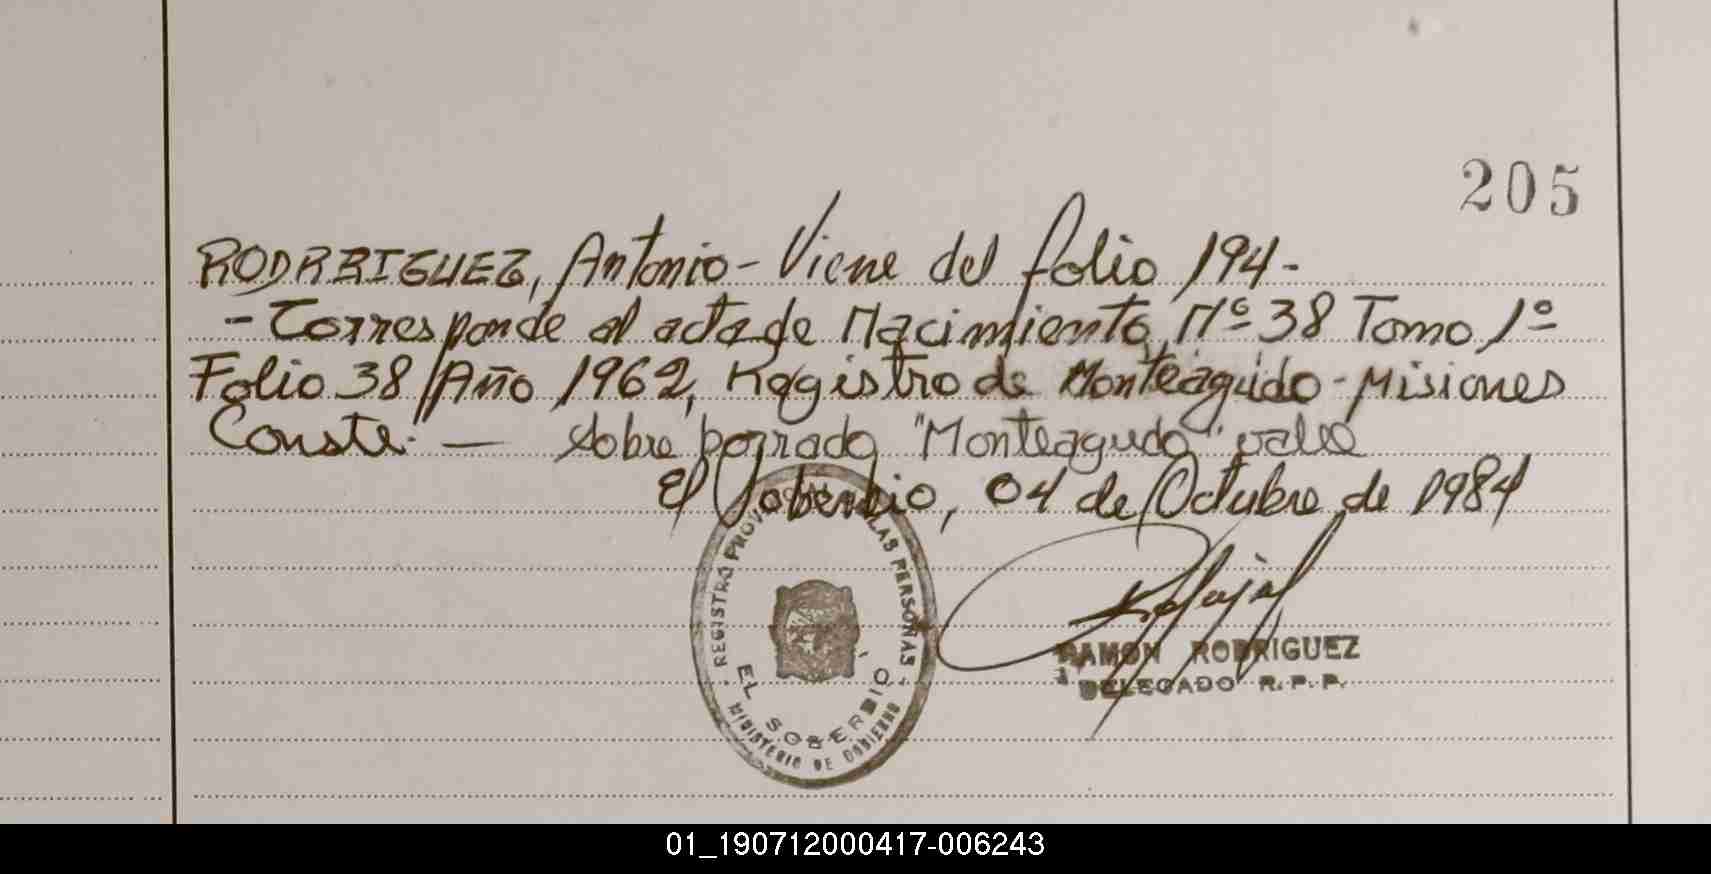 205
RODRRIGUEZ, Antonio - Viene del folio 194 -
- Corresponde al acta de Nacimiento, Nº 38 Tomo 1º
Folio 38 Año 1962, Registro de Monteagudo - Misiones
Conste. — sobre borrado "Monteagudo" vale
El Soberbio, 04 de Octubre de 1984
REGISTRO PROV LAS PERSONAS
EL SOBERBIO
MINISTERIO DE GOBIERNO
RAMON RODRIGUEZ
DELEGADO R.P.P.
01_190712000417-006243